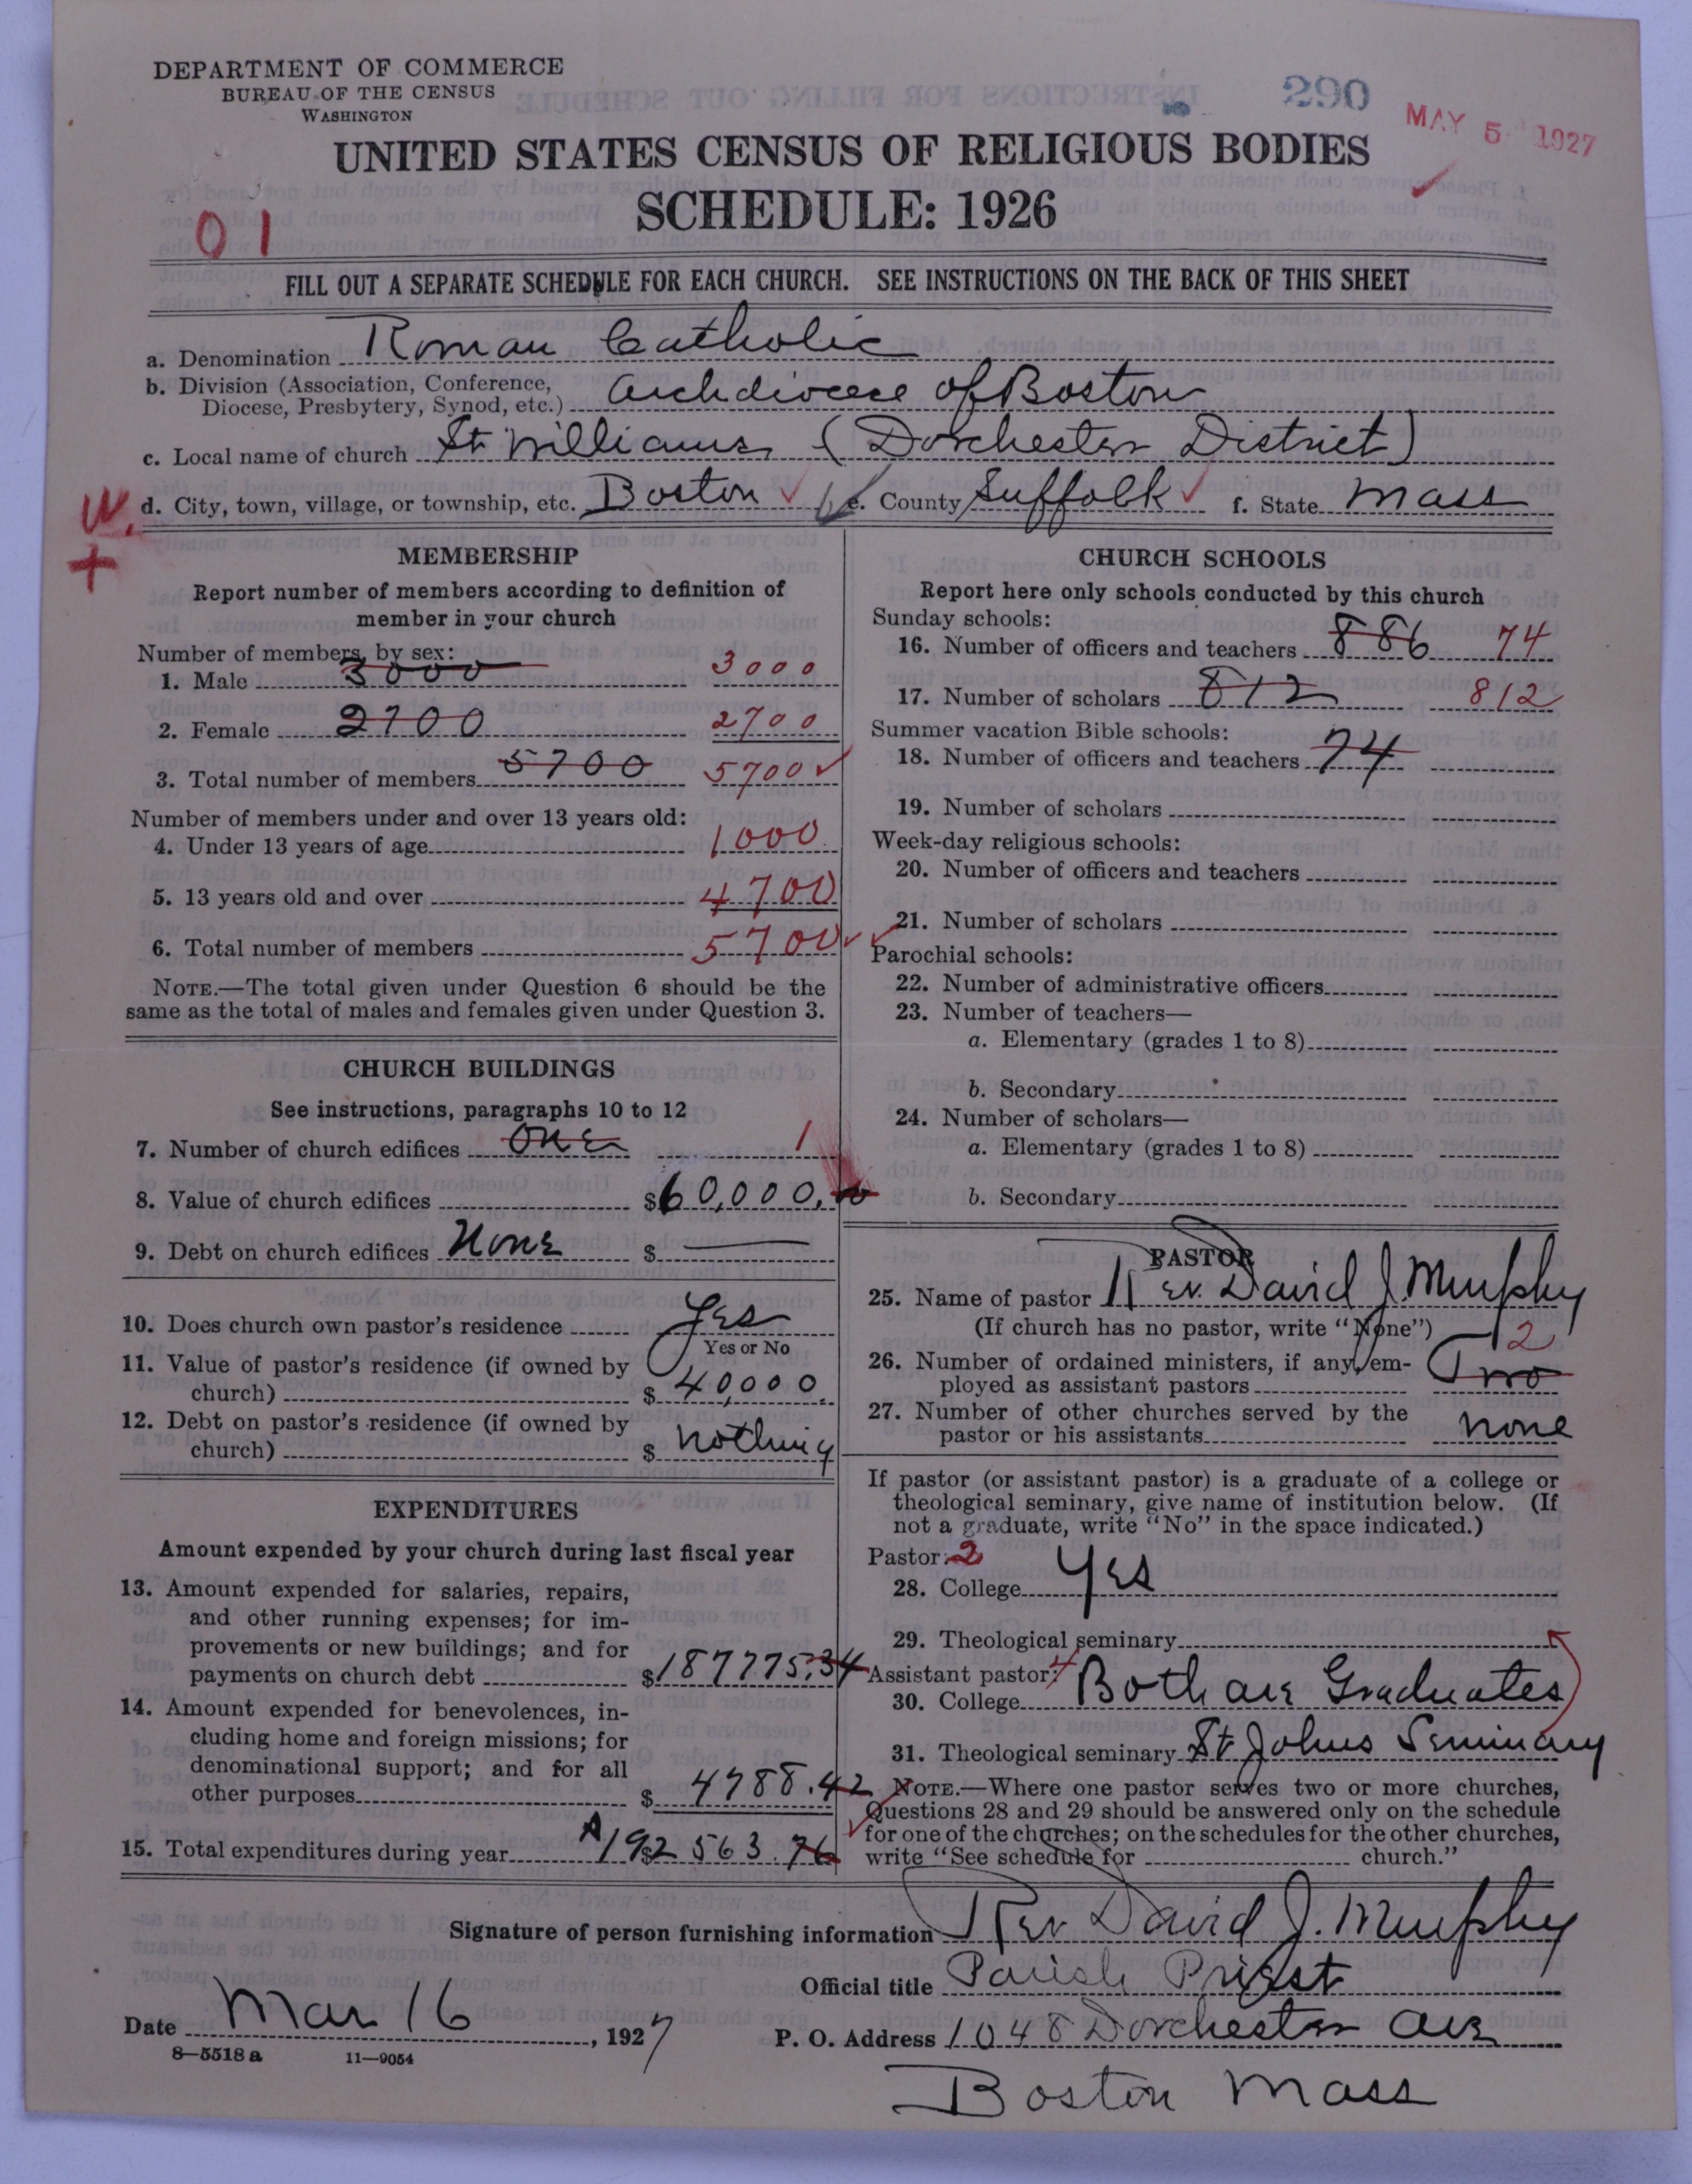 DEPARTMENT OF COMMERCE
BUREAU OF THE CENSUS
WASHINGTON
290
MAY 5 1927
UNITED STATES CENSUS OF RELIGIOUS BODIES
SCHEDULE: 1926
01
FILL OUT A SEPARATE SCHEDULE FOR EACH CHURCH. SEE INSTRUCTIONS ON THE BACK OF THIS SHEET
a. Denomination Roman Catholic
b. Division (Association, Conference, Diocese, Presbytery, Synod, etc.) Archdiocese of Boston
c. Local name of church St Williams (Dorchester District)
W. d. City, town, village, or township, etc. Boston e. County Suffolk f. State Mass
+
MEMBERSHIP
Report number of members according to definition of
member in your church
Number of members, by sex:
1. Male 3000 3000
2. Female 2700 2700
3. Total number of members 5700 5700
Number of members under and over 13 years old:
4. Under 13 years of age 1000
5. 13 years old and over 4700
6. Total number of members 5700
NOTE.—The total given under Question 6 should be the
same as the total of males and females given under Question 3.
CHURCH BUILDINGS
See instructions, paragraphs 10 to 12
7. Number of church edifices One 1
8. Value of church edifices $60,000,00
9. Debt on church edifices None $ —
10. Does church own pastor's residence Yes
Yes or No
11. Value of pastor's residence (if owned by
church) $ 40,000.
12. Debt on pastor's residence (if owned by
church) $ nothing
EXPENDITURES
Amount expended by your church during last fiscal year
13. Amount expended for salaries, repairs,
and other running expenses; for im-
provements or new buildings; and for
payments on church debt $187775.34
14. Amount expended for benevolences, in-
cluding home and foreign missions; for
denominational support; and for all
other purposes $ 4788.42
15. Total expenditures during year $192563.76
CHURCH SCHOOLS
Report here only schools conducted by this church
Sunday schools:
16. Number of officers and teachers 886 74
17. Number of scholars 812 812
Summer vacation Bible schools:
18. Number of officers and teachers 74
19. Number of scholars
Week-day religious schools:
20. Number of officers and teachers
21. Number of scholars
Parochial schools:
22. Number of administrative officers
23. Number of teachers—
a. Elementary (grades 1 to 8)
b. Secondary
24. Number of scholars—
a. Elementary (grades 1 to 8)
b. Secondary
PASTOR
25. Name of pastor Rev. David J. Murphy
(If church has no pastor, write "None")
26. Number of ordained ministers, if any, em-
ployed as assistant pastors Two 2
27. Number of other churches served by the
pastor or his assistants none
If pastor (or assistant pastor) is a graduate of a college or
theological seminary, give name of institution below. (If
not a graduate, write "No" in the space indicated.)
Pastor: 2
28. College Yes
29. Theological seminary
Assistant pastor: 4
30. College Both are Graduates
31. Theological seminary St Johns Seminary
NOTE.—Where one pastor serves two or more churches,
Questions 28 and 29 should be answered only on the schedule
for one of the churches; on the schedules for the other churches,
write "See schedule for church."
Signature of person furnishing information Rev David J. Murphy
Official title Parish Priest
Date Mar 16, 1927
P. O. Address 1048 Dorchester Ave
8—5518 a 11—9054
Boston Mass